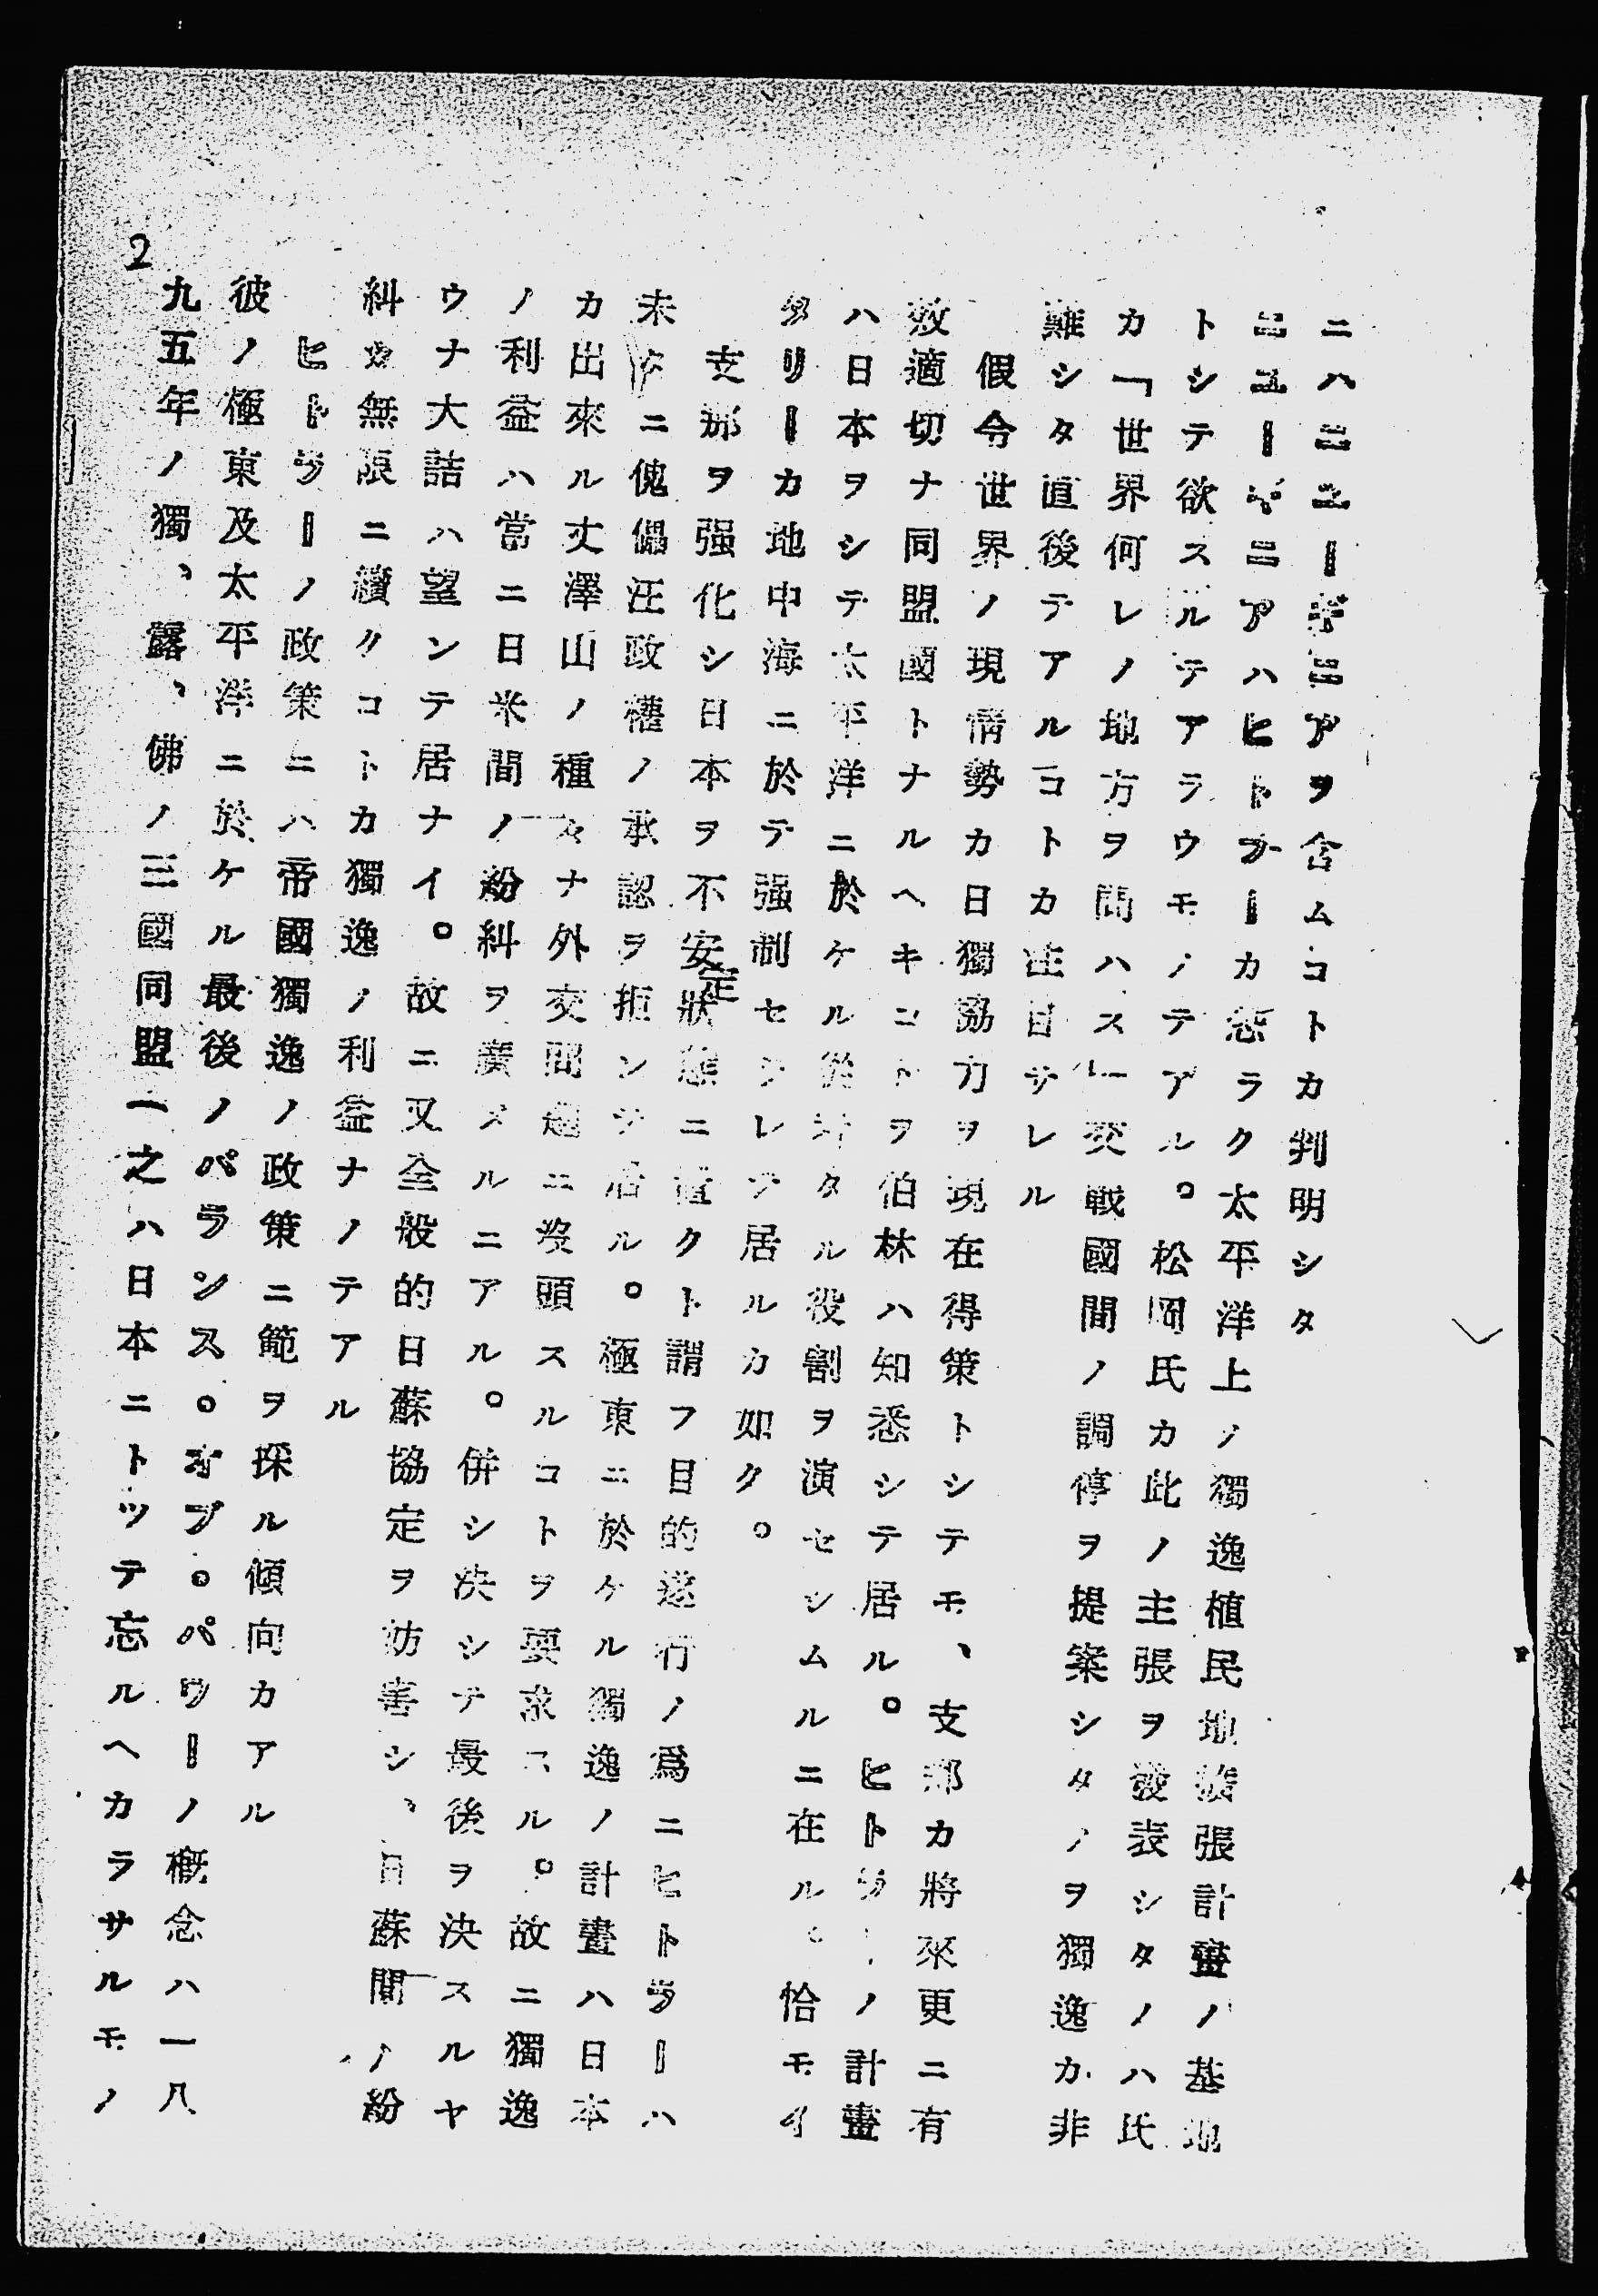 ニハニユーギニアヲ含ムコトカ判明シタ
ニユーギニアハヒトラーカ恐ラク太平洋上ノ獨逸植民地擴張計畫ノ基地
トシテ欲スルテアラウモノテアル。松岡氏カ此ノ主張ヲ發表シタノハ氏
カ「世界何レノ地方ヲ問ハス」交戰國間ノ調停ヲ提案シタノヲ獨逸カ非
難シタ直後テアルコトカ注目サレル
假令世界ノ現情勢カ日獨協力ヲ現在得策トシテモ、支那カ將來更ニ有
效適切ナ同盟國トナルヘキコトヲ伯林ハ知悉シテ居ル。ヒトラーノ計畫
ハ日本ヲシテ太平洋ニ於ケル從タル役割ヲ演セシムルニ在ル。恰モイ
タリーカ地中海ニ於テ强制セラレテ居ルカ如ク。
支那ヲ强化シ日本ヲ不安定狀態ニ置クト謂フ目的遂行ノ爲ニヒトラーハ
未タニ傀儡汪政權ノ承認ヲ拒ンテ居ル。極東ニ於ケル獨逸ノ計畫ハ日本
カ出來ル丈澤山ノ種々ナ外交問題ニ沒頭スルコトヲ要求スル。故ニ獨逸
ノ利益ハ當ニ日米間ノ紛糾ヲ廣メルニアル。併シ決シテ最後ヲ決スルヤ
ウナ大詰ハ望ンテ居ナイ。故ニ又全般的日蘇協定ヲ妨害シ、日蘇間ノ紛
糾カ無限ニ續クコトカ獨逸ノ利益ナノテアル
ヒトラーノ政策ニハ帝國獨逸ノ政策ニ範ヲ採ル傾向カアル
彼ノ極東及太平洋ニ於ケル最後ノバランス。オブ。パワーノ槪念ハ一八
九五年ノ獨、露、佛ノ三國同盟一之ハ日本ニトツテ忘ルヘカラサルモノ
2